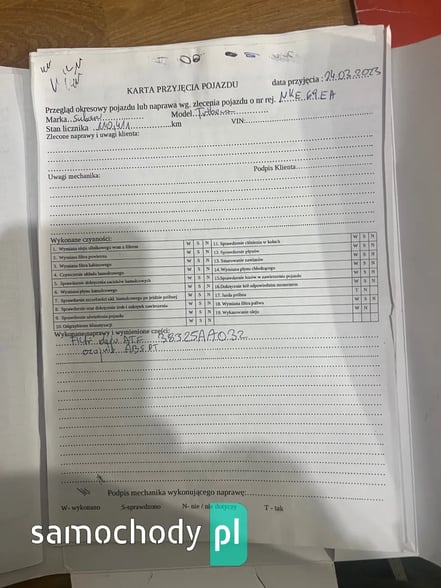 KARTA PRZYJĘCIA POJAZDU
data przyjęcia : 24.03.2023
Przegląd okresowy pojazdu lub naprawa wg. zlecenia pojazdu o nr rej. NKE 69EA
Marka Subaru Model
Stan licznika km VIN:
Zlecone naprawy i uwagi klienta:
Podpis Klienta
Uwagi mechanika:
Wykonane czynności:
1. Wymiana oleju silnikowego wraz z filtrem W S N 11. Sprawdzenie ciśnienia w kołach W S N
2. Wymiana filtra powietrza W S N 12. Sprawdzenie płynów W S N
3. Wymiana filtra kabinowego W S N 13. Smarowanie zawiasów W S N
4. Czyszczenie układu hamulcowego W S N 14. Wymiana płynu chłodzącego W S N
5. Sprawdzenie dokręcenia zacisków hamulcowych W S N 15. Sprawdzenie luzów w zawieszeniu pojazdu W S N
6. Wymiana płynu hamulcowego W S N 16. Dokręcenie kół odpowiednim momentem W S N
7. Sprawdzenie szczelności ukł. hamulcowego po jeździe próbnej W S N 17. Jazda próbna T N
8. Sprawdzenie oraz dokręcenie śrub i nakrętek zawieszenia W S N 18. Wymiana filtra paliwa W S N
9. Sprawdzenie oświetlenia pojazdu W S N 19. Wykasowanie oleju W N
10. Odgrzybienie klimatyzacji W S N
Wykonane naprawy i wymienione części:
38325AA032
Podpis mechanika wykonującego naprawę:
W- wykonano S-sprawdzono N- nie / nie dotyczy T - tak
samochody pl